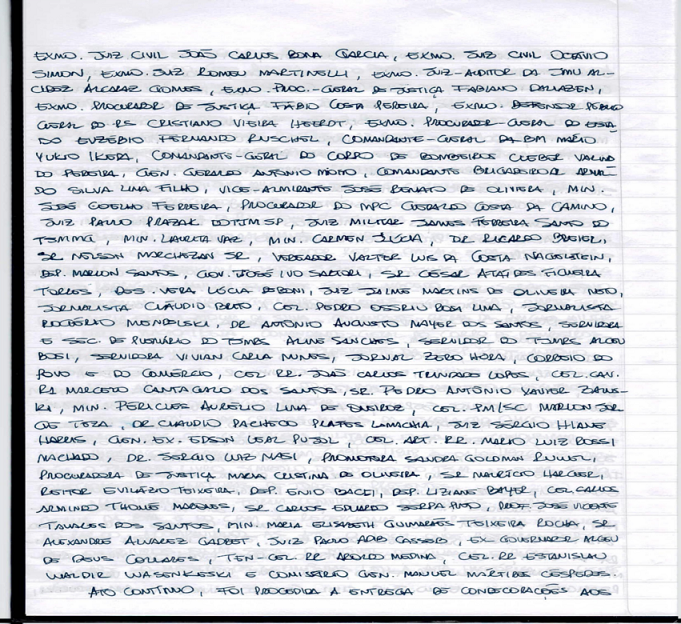 EXMO. JUIZ CIVIL JOÃO CARLOS BONA GARCIA, EXMO. JUIZ CIVIL OCTÁVIO
SIMON, EXMO. JUIZ ROMEU MARTINELLI, EXMO. JUIZ-AUDITOR DA JMU AL-
CIDES ALCARAZ GOMES, EXMO. PROC.-GERAL DE JUSTIÇA FABIANO DALLAZEN,
EXMO. PROCURADOR DE JUSTIÇA FÁBIO COSTA PEREIRA, EXMO. DEFENSOR PÚBLICO
GERAL DO RS CRISTIANO VIEIRA HEERDT, EXMO. PROCURADOR-GERAL DO ESTA-
DO EUZÉBIO FERNANDO RUSCHEL, COMANDANTE-GERAL DA BM MÁRIO
YUKIO IKEDA, COMANDANTE-GERAL DO CORPO DE BOMBEIROS CLEBER VALINO
DO PEREIRA, GEN. GERALDO ANTÔNIO MIOTTO, COMANDANTE BRIGADEIRO AR ARNAL
DO SILVA LIMA FILHO, VICE-ALMIRANTE JOSÉ RENATO DE OLIVEIRA, MIN.
JOSÉ COELHO FERREIRA, PROCURADOR DO MPC GERALDO COSTA DA CAMINO,
JUIZ PAULO PRAZAK DO TJMSP, JUIZ MILITAR JAMES FERREIRA SANTOS DO
TJMMG, MIN. LAURITA VAZ, MIN. CARMEN LÚCIA, DR RICARDO BREIER,
SR NELSON MARCHEZAN SR, VEREADOR VALTER LUIS DA COSTA NAGELSTEIN,
DEP. MARLON SANTOS, GOV. JOSÉ IVO SARTORI, SR CÉSAR ATAÍDES FIGUEIRA
TORRES, DES. VERA LÚCIA DEBONI, JUIZ JAIME MARTINS DE OLIVEIRA NETO,
JORNALISTA CLÁUDIO BRITO, CEL. PEDRO OSÓRIO ROSA LIMA, JORNALISTA
ROGÉRIO MENDELSKI, DR ANTÔNIO AUGUSTO MAYER DOS SANTOS, SERVIDORA
E SEC. DE PLENÁRIO DO TJMRS ALINE SANCHES, SERVIDOR DO TJMRS ALCEU
BOSI, SERVIDORA VIVIAN CARLA NUNES, JORNAL ZERO HORA, CORREIO DO
POVO E DO COMÉRCIO, CEL. RR. JOÃO CARLOS TRINDADE LOPES, CEL. CAV.
R1 MARCELO CANTAGALO DOS SANTOS, SR. PEDRO ANTÔNIO XAVIER
MIN. PERICLES AURÉLIO LIMA DE QUEIROZ, CEL. PM/SC MARLON JOR
GE TEZA, DR CLAUDIO PACHECO PRATES LAMACHIA, JUIZ SÉRGIO HIANE
HARRIS, GEN. EX. EDSON LEAL PUJOL, CEL. ART. RR. MARIO LUIZ ROSSI
MACHADO, DR. SERGIO LUIZ NASI, PROMOTORA SANDRA GOLDMAN RUWEL,
PROCURADORA DE JUSTIÇA MARIA CRISTINA DE OLIVEIRA, SR MAURÍCIO HARGER,
REITOR EVILÁZIO TEIXEIRA, DEP. ENIO BACCI, DEP. LIZIANE BAYER, CEL. CARLOS
ARMINDO THOMÉ MARQUES, SR CARLOS EDUARDO SERPA PINTO, PROF. JOSÉ VICENTE
TAVARES DOS SANTOS, MIN. MARIA ELISABETH GUIMARÃES TEIXEIRA ROCHA, SR
ALEXANDRE ALVAREZ GADRET, JUIZ PAULO ADIB CASSEB, EX GOVERNADOR ALCEU
DE DEUS COLLARES, TEN-CEL. RR AROLDO MEDINA, CEL. RR ESTANISLAU
WALDIR WASENKESKI E COMISSÁRIO GEN. MANUEL MÁRTIRES CÉSPEDES.
ATO CONTÍNUO, FOI PROCEDIDA A ENTREGA DE CONDECORAÇÕES AOS